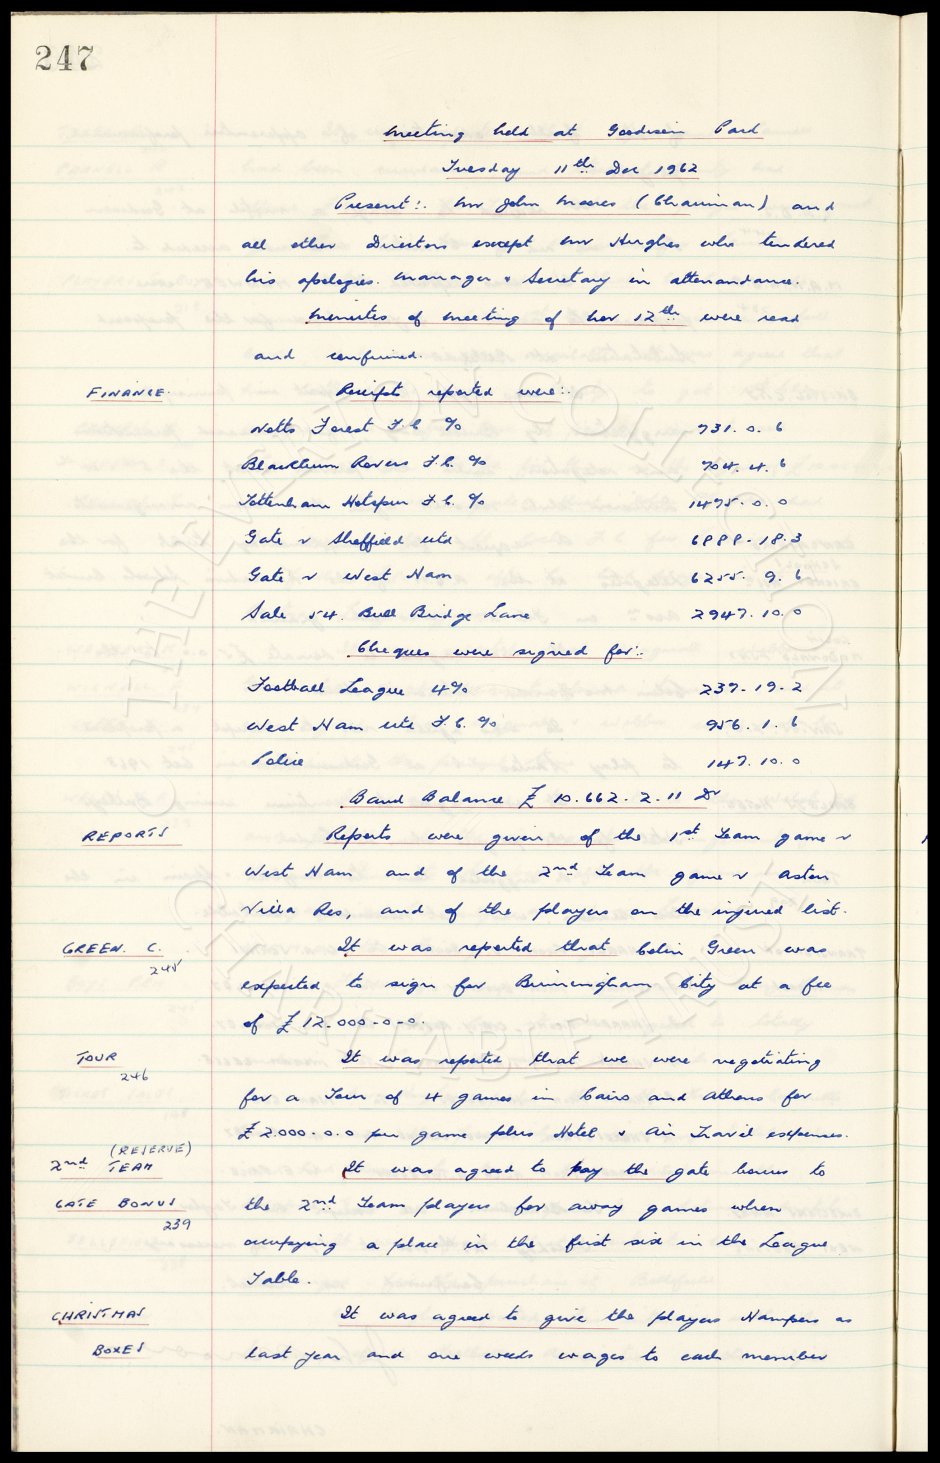 247
Meeting held at Goodison Park
Tuesday 11th Dec 1962
Present:. Mr John Moores (Chairman) and
all other Directors except Mr Hughes who tendered
his apologies. Manager & Secretary in attenandance.
Minutes of meeting of Nov 12th were read
and confirmed.
FINANCE. Receipts reported were:.
Notts Forest F.C. % 731. 0. 6
Blackburn Rovers F.C. % 704. 4. 6
Tottenham Hotspur F.C. % 1475. 0. 0
Gate v Sheffield Utd 6888. 18. 3
Gate v West Ham 6255. 9. 6
Sale 54. Bull Bridge Lane 2947. 10. 0
Cheques were signed for:.
Football League 4% 239. 19. 2
West Ham Utd F.C. % 956. 1. 6
Police 147. 10. 0
Bank Balance £ 10.662. 2. 11 Dr
REPORTS Reports were given of the 1st Team game v
West Ham and of the 2nd Team game v Aston
Villa Res, and of the players on the injured list.
GREEN. C. It was reported that Colin Green was
245 expected to sign for Birmingham City at a fee
of £12.000-0-0.
TOUR It was reported that we were negotiating
246 for a Tour of 4 games in Cairo and Athens for
£2000. 0. 0 per game plus Hotel & Air Travel expenses.
(RESERVE)
2nd TEAM It was agreed to pay the gate bonus to
GATE BONUS the 2nd Team players for away games when
239 occupying a place in the first six in the League
Table.
CHRISTMAS It was agreed to give the players Hampers as
BOXES last year and one weeks wages to each member
THE EVERTON COLLECTION
CHARITABLE TRUST